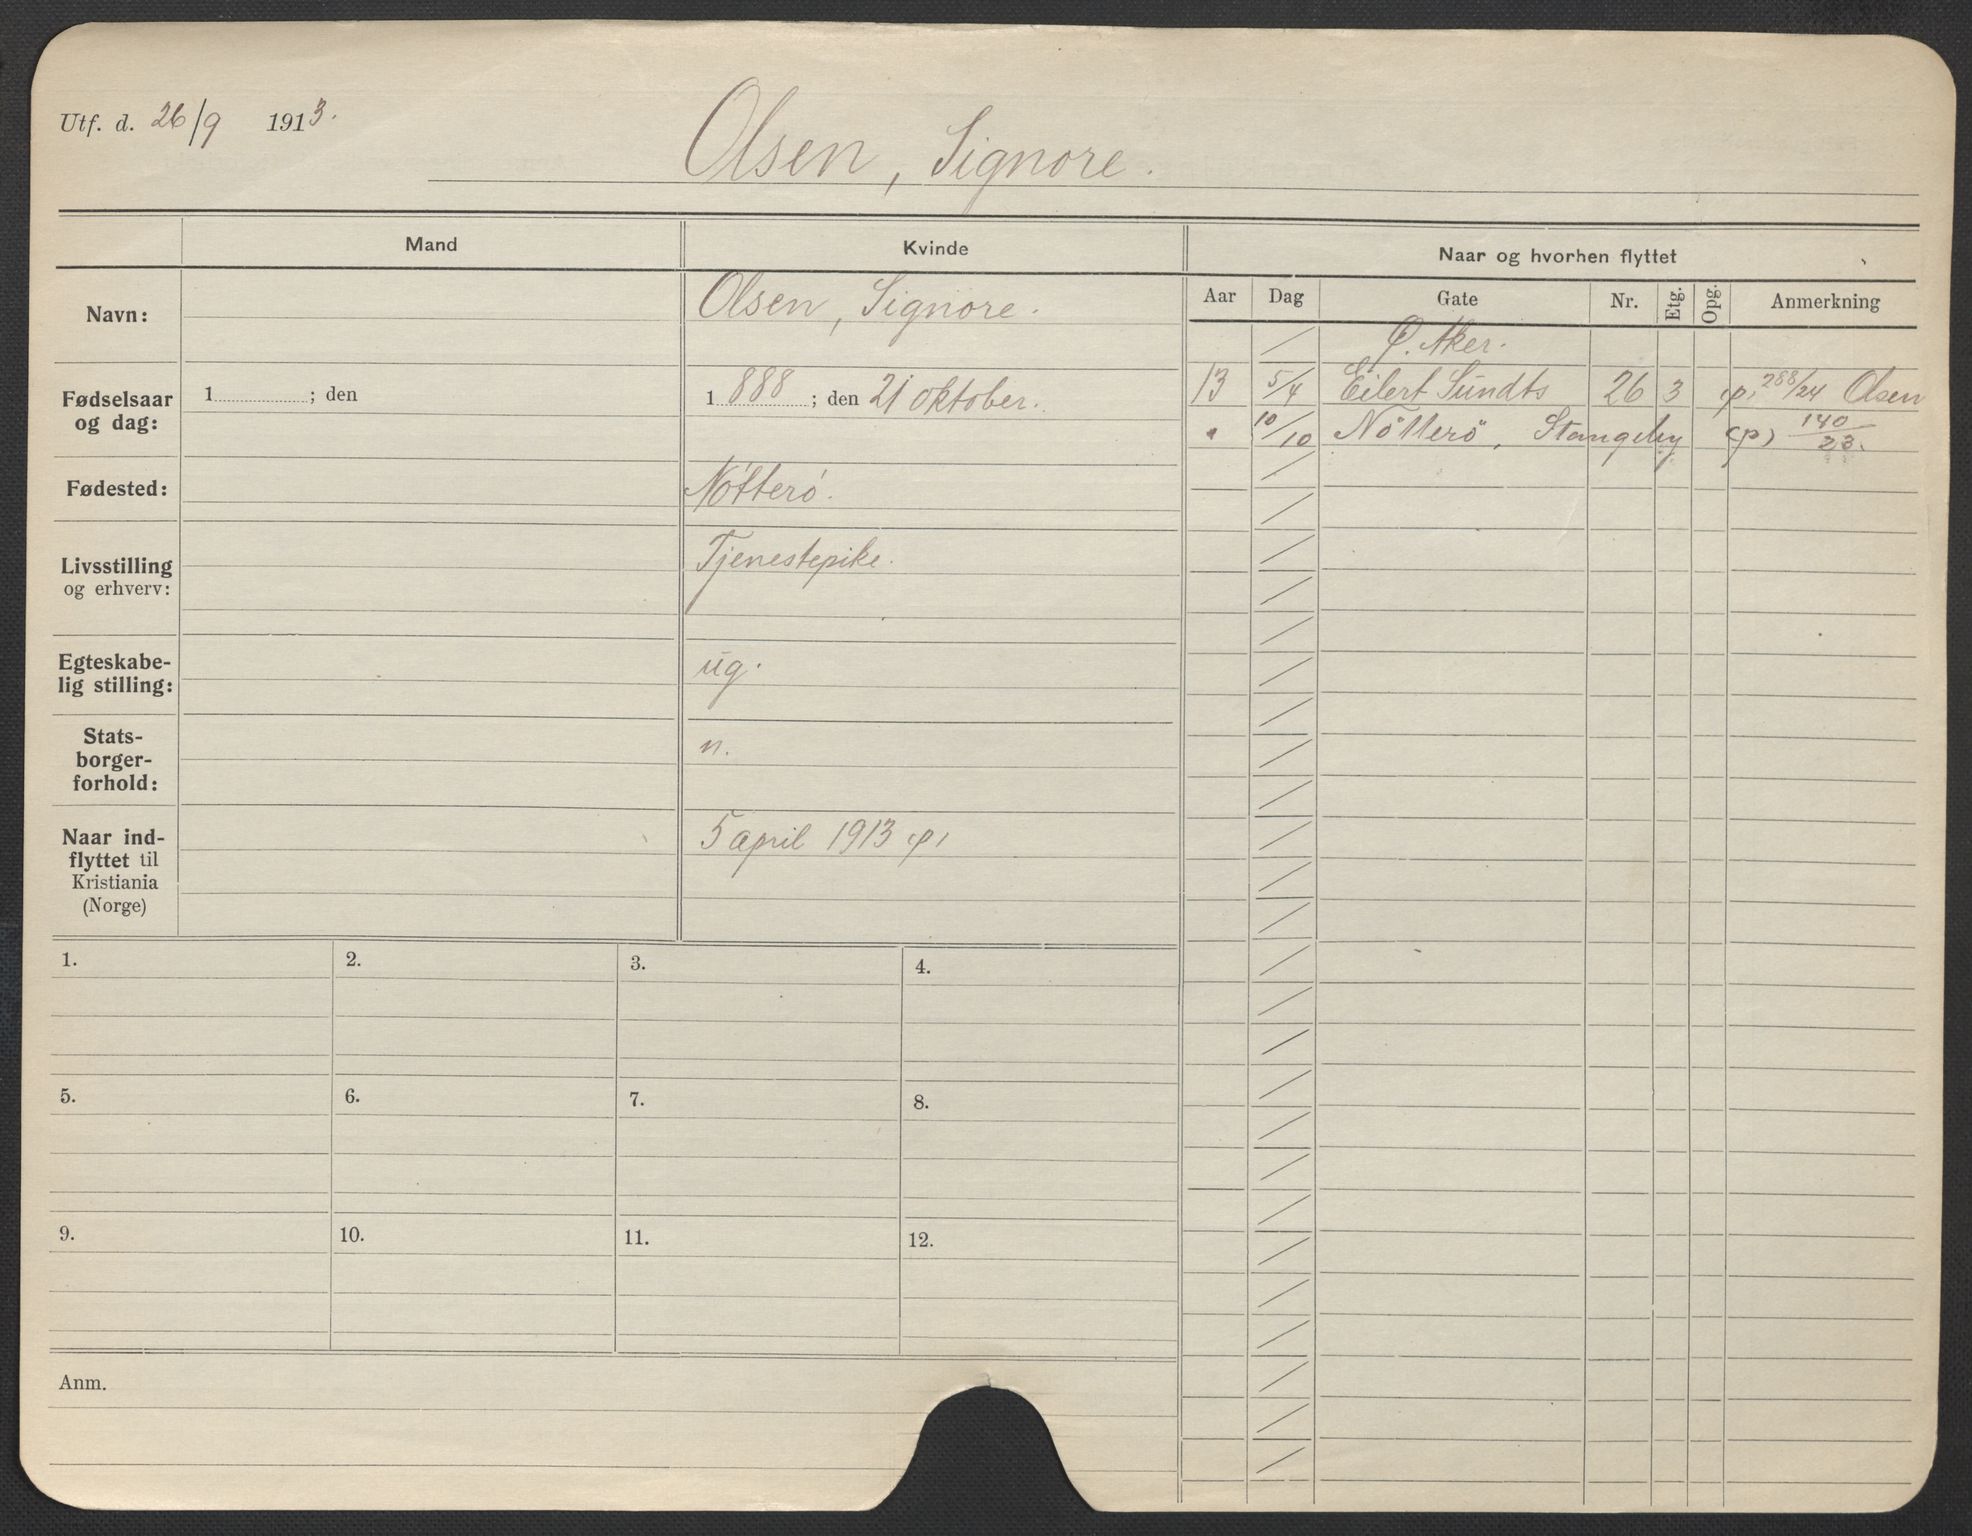 Utf. d. 26/9 1913.
Olsen, Signore.
Mand
Kvinde
Naar og hvorhen flyttet
Navn:
Olsen, Signore.
Fødselsaar og dag:
1 ; den
1888 ; den 21 oktober.
Fødested:
Nötterö.
Livsstilling og erhverv:
Tjenestepike.
Egteskabe-
lig stilling:
ug.
Stats-
borger-
forhold:
n.
Naar ind-
flyttet til
Kristiania
(Norge)
5 april 1913 (p)
Aar Dag Gate Nr. Etg. Opg. Anmerkning
/ Ø. Aker.
13 5/4 Eilert Sundts 26 3 (p) 288/24 Olsen
" 10/10 Nötterö, Stangeby (p) 140/23.
1. 2. 3. 4.
5. 6. 7. 8.
9. 10. 11. 12.
Anm.